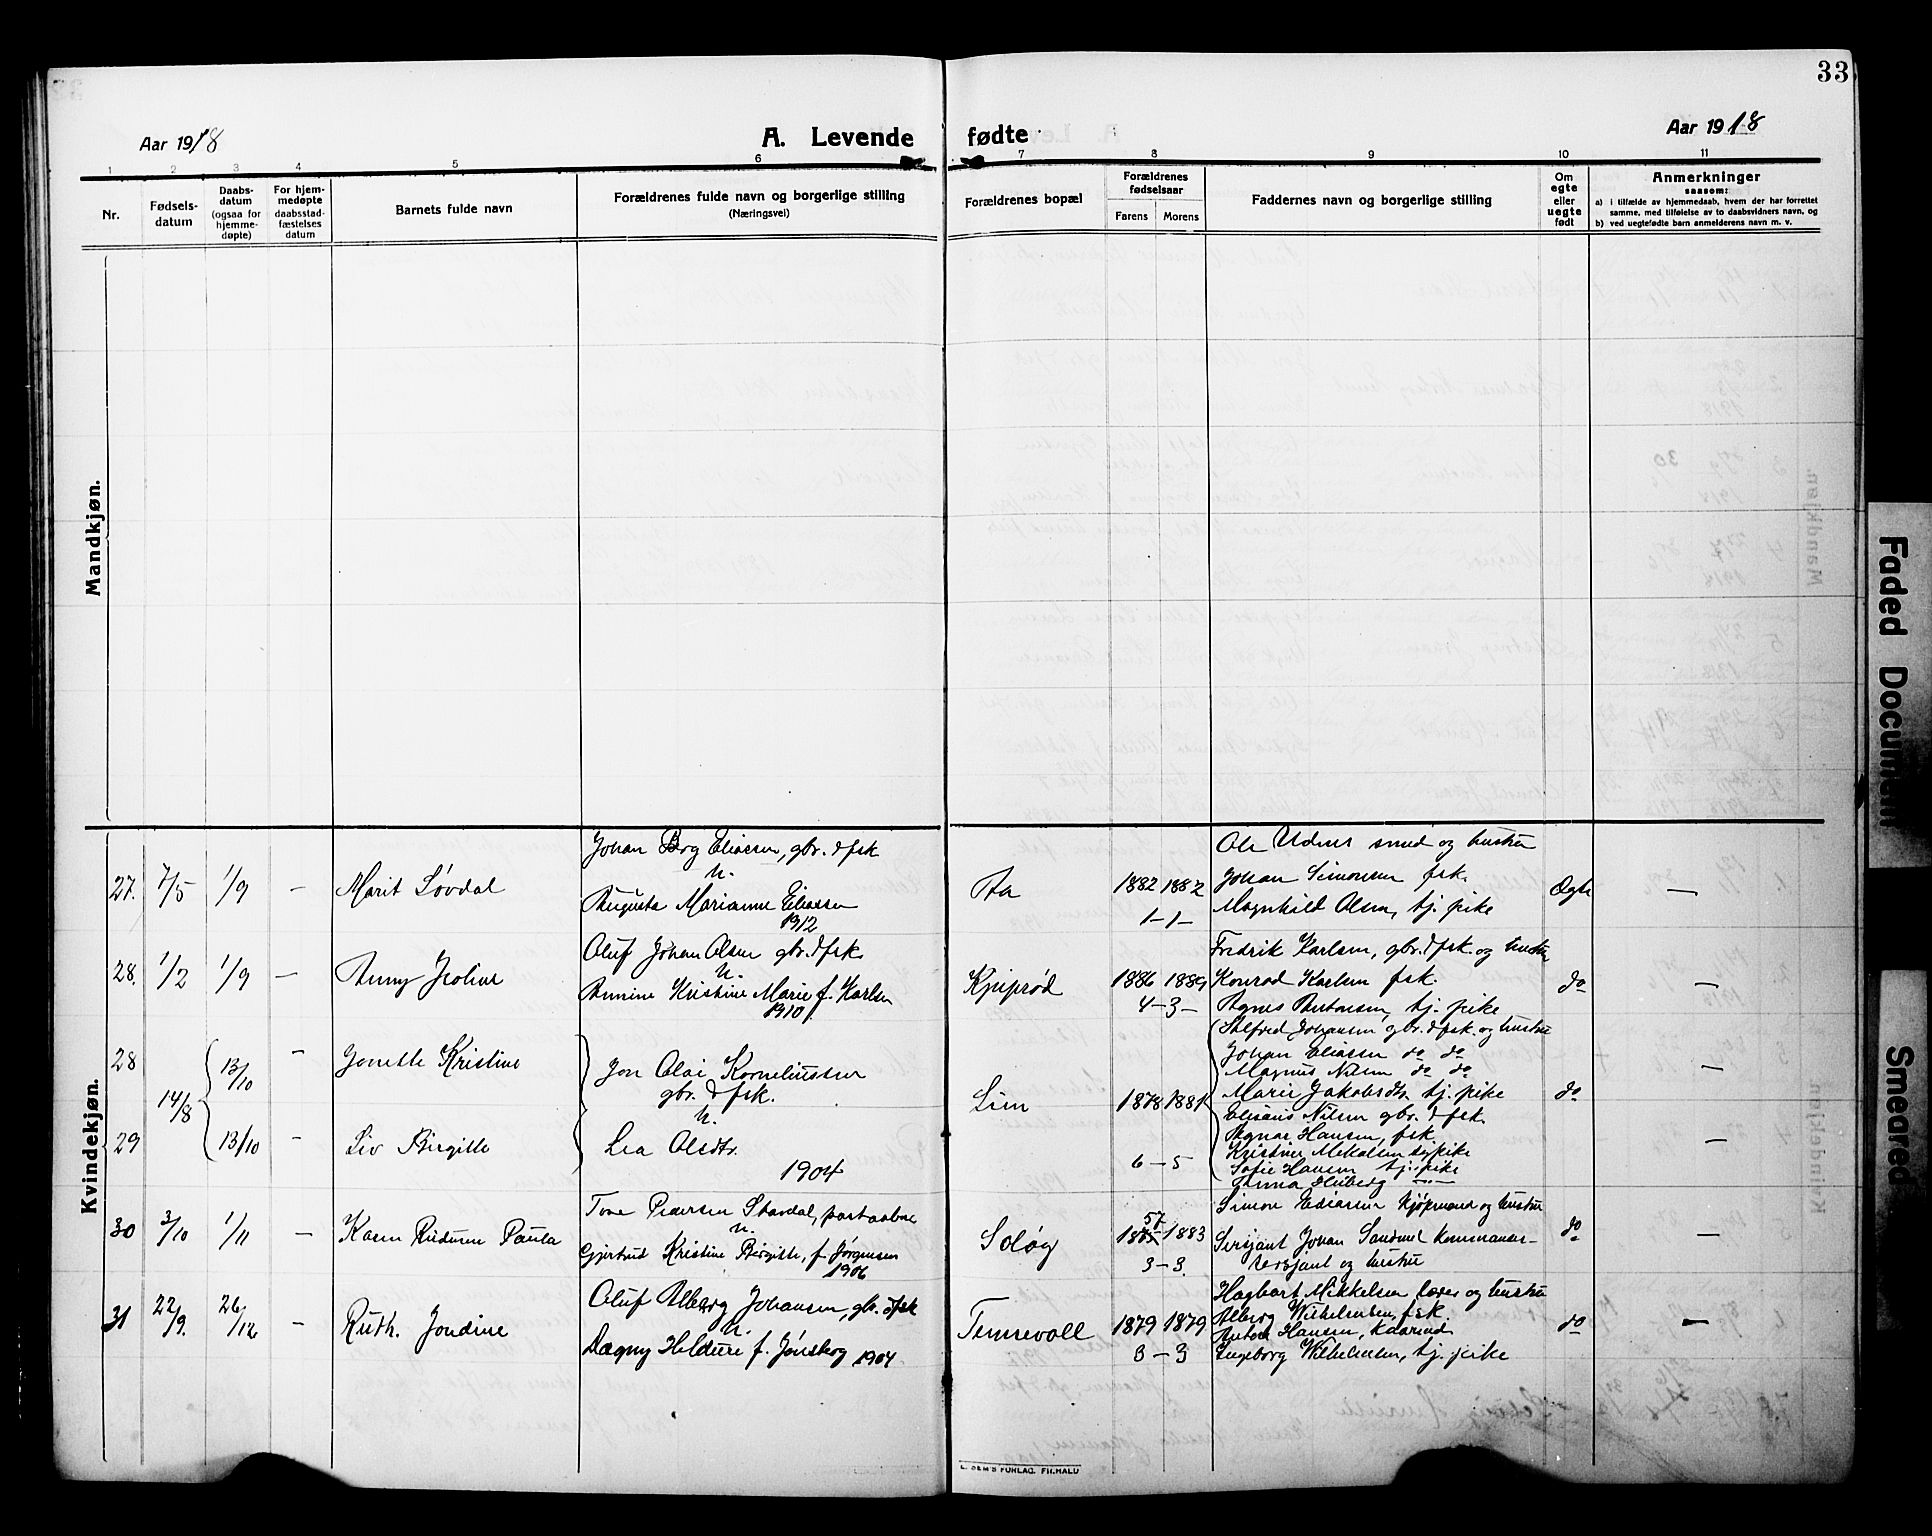 33
Aar 1918
A. Levende fødte
Aar 1918
1 2 3 4 5 6 7 8 9 10 11
Nr.
Fødsels-
datum
Daabs-
datum
(ogsaa for
hjemme-
døpte)
For hjem-
medøpte
daabsstad-
fæstelses
datum
Barnets fulde navn
Forældrenes fulde navn og borgerlige stilling
(Næringsvei)
Forældrenes bopæl
Forældrenes
fødselsaar
Farens Morens
Faddernes navn og borgerlige stilling
Om
egte
eller
uegte
født
Anmerkninger
saasom:
a) i tilfælde av hjemmedaab, hvem der har forrettet
samme, med tilføielse av to daabsvidners navn, og
b) ved uegtefødte barn anmelderens navn m. v.
Mandkjøn.
Kvindekjøn.
27. 7/5 1/9 — Marit Løvdal
Johan Borg Eliassen, gbr. & fsk
h.
Augusta Marianne Eliassen
1912
Aa
1882 1882
1 – 1 –
Ole Udnes smed og hustru
Johan Simonsen fsk.
Magnhild Olsen, tj. pike
Ægte —
28. 1/2 1/9 — Anny
Oluf Johan Olsen gbr. & fsk.
h.
Annine Kristine Marie f. Karlsen
1910
1886 1889
4 – 3 –
Fredrik Karlsen, gbr. & fsk. og hustru
Konrad Karlsen fsk.
Agnes Antonsen, tj. pike
do —
28 14/8 13/10 — Jonette Kristine
29 13/10 — Liv Birgitte
Jon Olai Korneliussen
gbr. & fsk.
h.
Lea Olsdtr.
1904
1878 1881
6 – 5
Johansen gbr. & fsk. og hustru
Johan Eliassen do do
Magnus Nilsen do do
Marie Jakobsdtr. tj. pike
Nilsen gbr. & fsk.
Ragnar Hansen, fsk.
Kristine
Sofie Hansen tj. pike
do —
—
30 3/10 1/11 — Karen Paula
Tore Pedersen
h.
Gjertrud Kristine Birgitte, f. Jørgensen
1906
Soløy
1883
3 – 3.
Simon kjøpmand og hustru
Sersjant Johan
sersjant og hustru
do —
31 22/9. 26/12 — Ruth. Jondine
Oluf Alberg Johansen, gbr. & fsk
h.
Dagny f. Jønsberg 1904
Tennevoll
1879 1879
3 – 3
Hagbart Mikkelsen lærer og hustru
Alberg Wilhelmsen, fsk
Hansen,
Ingeborg Wilhelmsen, tj. pike
do —
Faded Document
Smeared